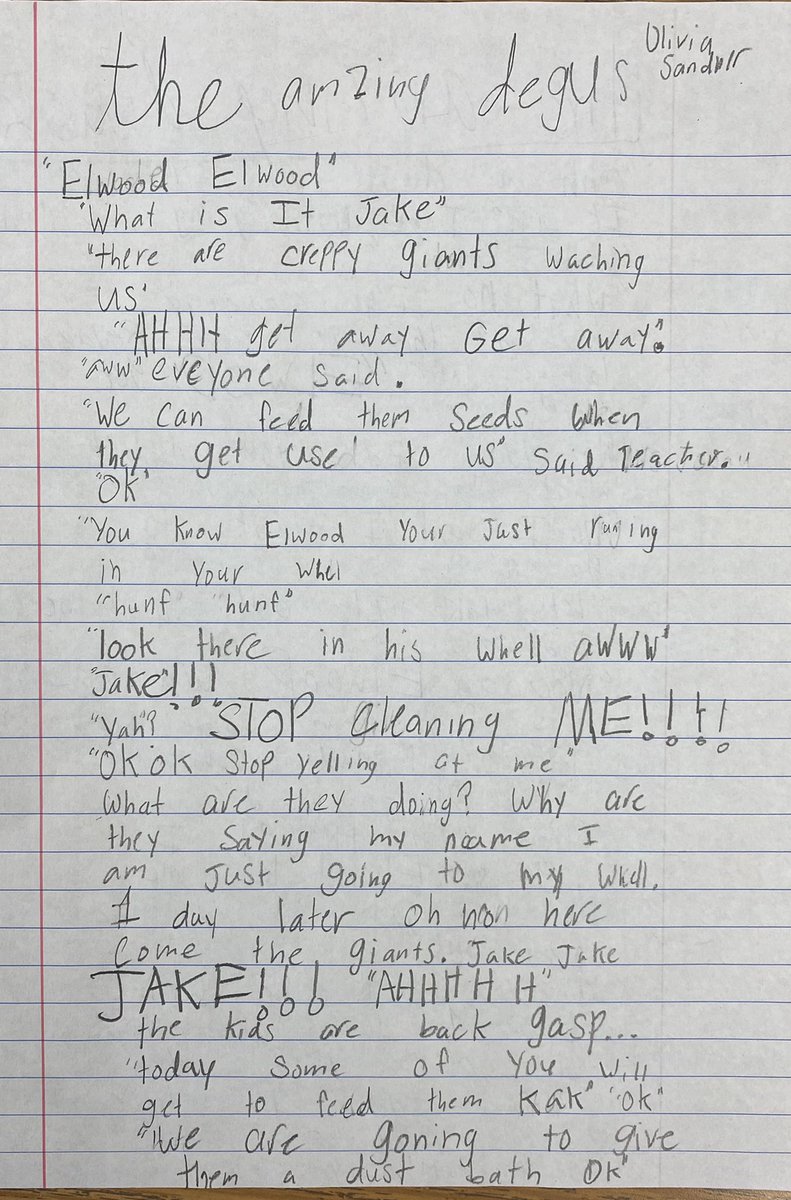 the amzing degus
Olivia
"Elwood Elwood"
"What is It Jake"
"there are creppy giants waching
us"
"AHHH get away Get away".
"aww" eveyone said.
"We can feed them Seeds when
they get use to us" Said Teacher."
"Ok"
"You know Elwood Your Just
in your whel
"hunf" "hunf"
"look there in his whell awww"
"Jake"!!!
"Yah"? "STOP Cleaning ME!!!!
"OK ok stop yelling at me"
What are they doing? Why are
they saying my name I
am Just going to my whell.
1 day later oh here
Come the giants. Jake Jake
JAKE!!! "AHHHHH"
the kids are back gasp...
"today some of you will
get to feed them kak" "ok"
"We are goning to give
them a dust bath Ok"